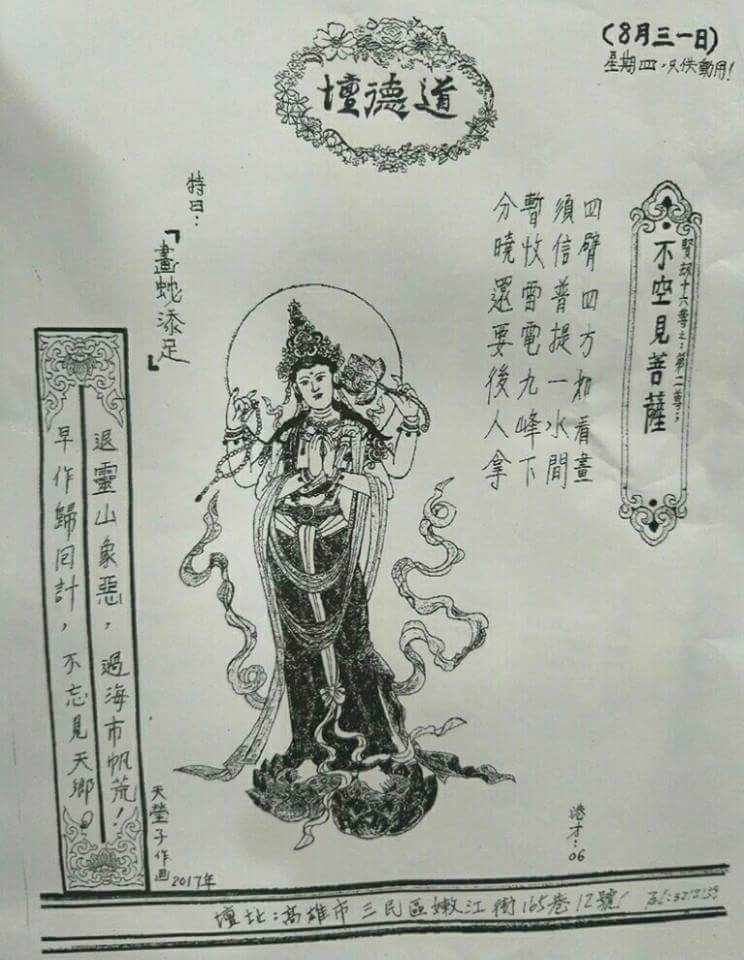 (8月三一日)
星期四,只供
道德壇
賢劫十六尊之:第二尊;
不空見菩薩
四臂四方如看畫
須信普提一水間
暫收雷電九峰下
分曉還要後人拿
特曰:
「畫蛇添足」
退靈山象惡,過海市帆荒!
早作歸回計,不忘見天鄉。
天瑩子作画
2017年
港才:06
壇址:高雄市三民區嫩江街165巷12號!